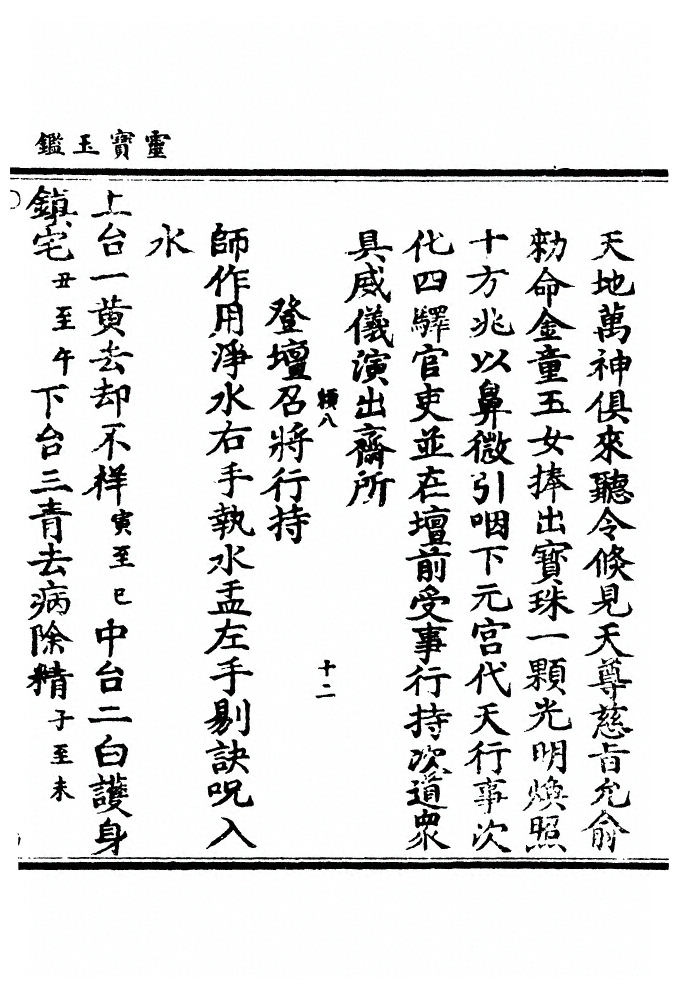 靈寶玉鑑
天地萬神俱來聽令倐見天尊慈旨允俞
勑命金童玉女捧出寶珠一顆光明煥照
十方兆以鼻微引咽下元宮代天行事次
化四驛官吏並在壇前受事行持次道衆
具威儀演出齋所
頼八
十二
登壇召將行持
師作用淨水右手執水盂左手剔訣呪入
水
上台一黄去却不样寅至巳中台二白護身
鎮宅丑至午下台三青去病除精子至未